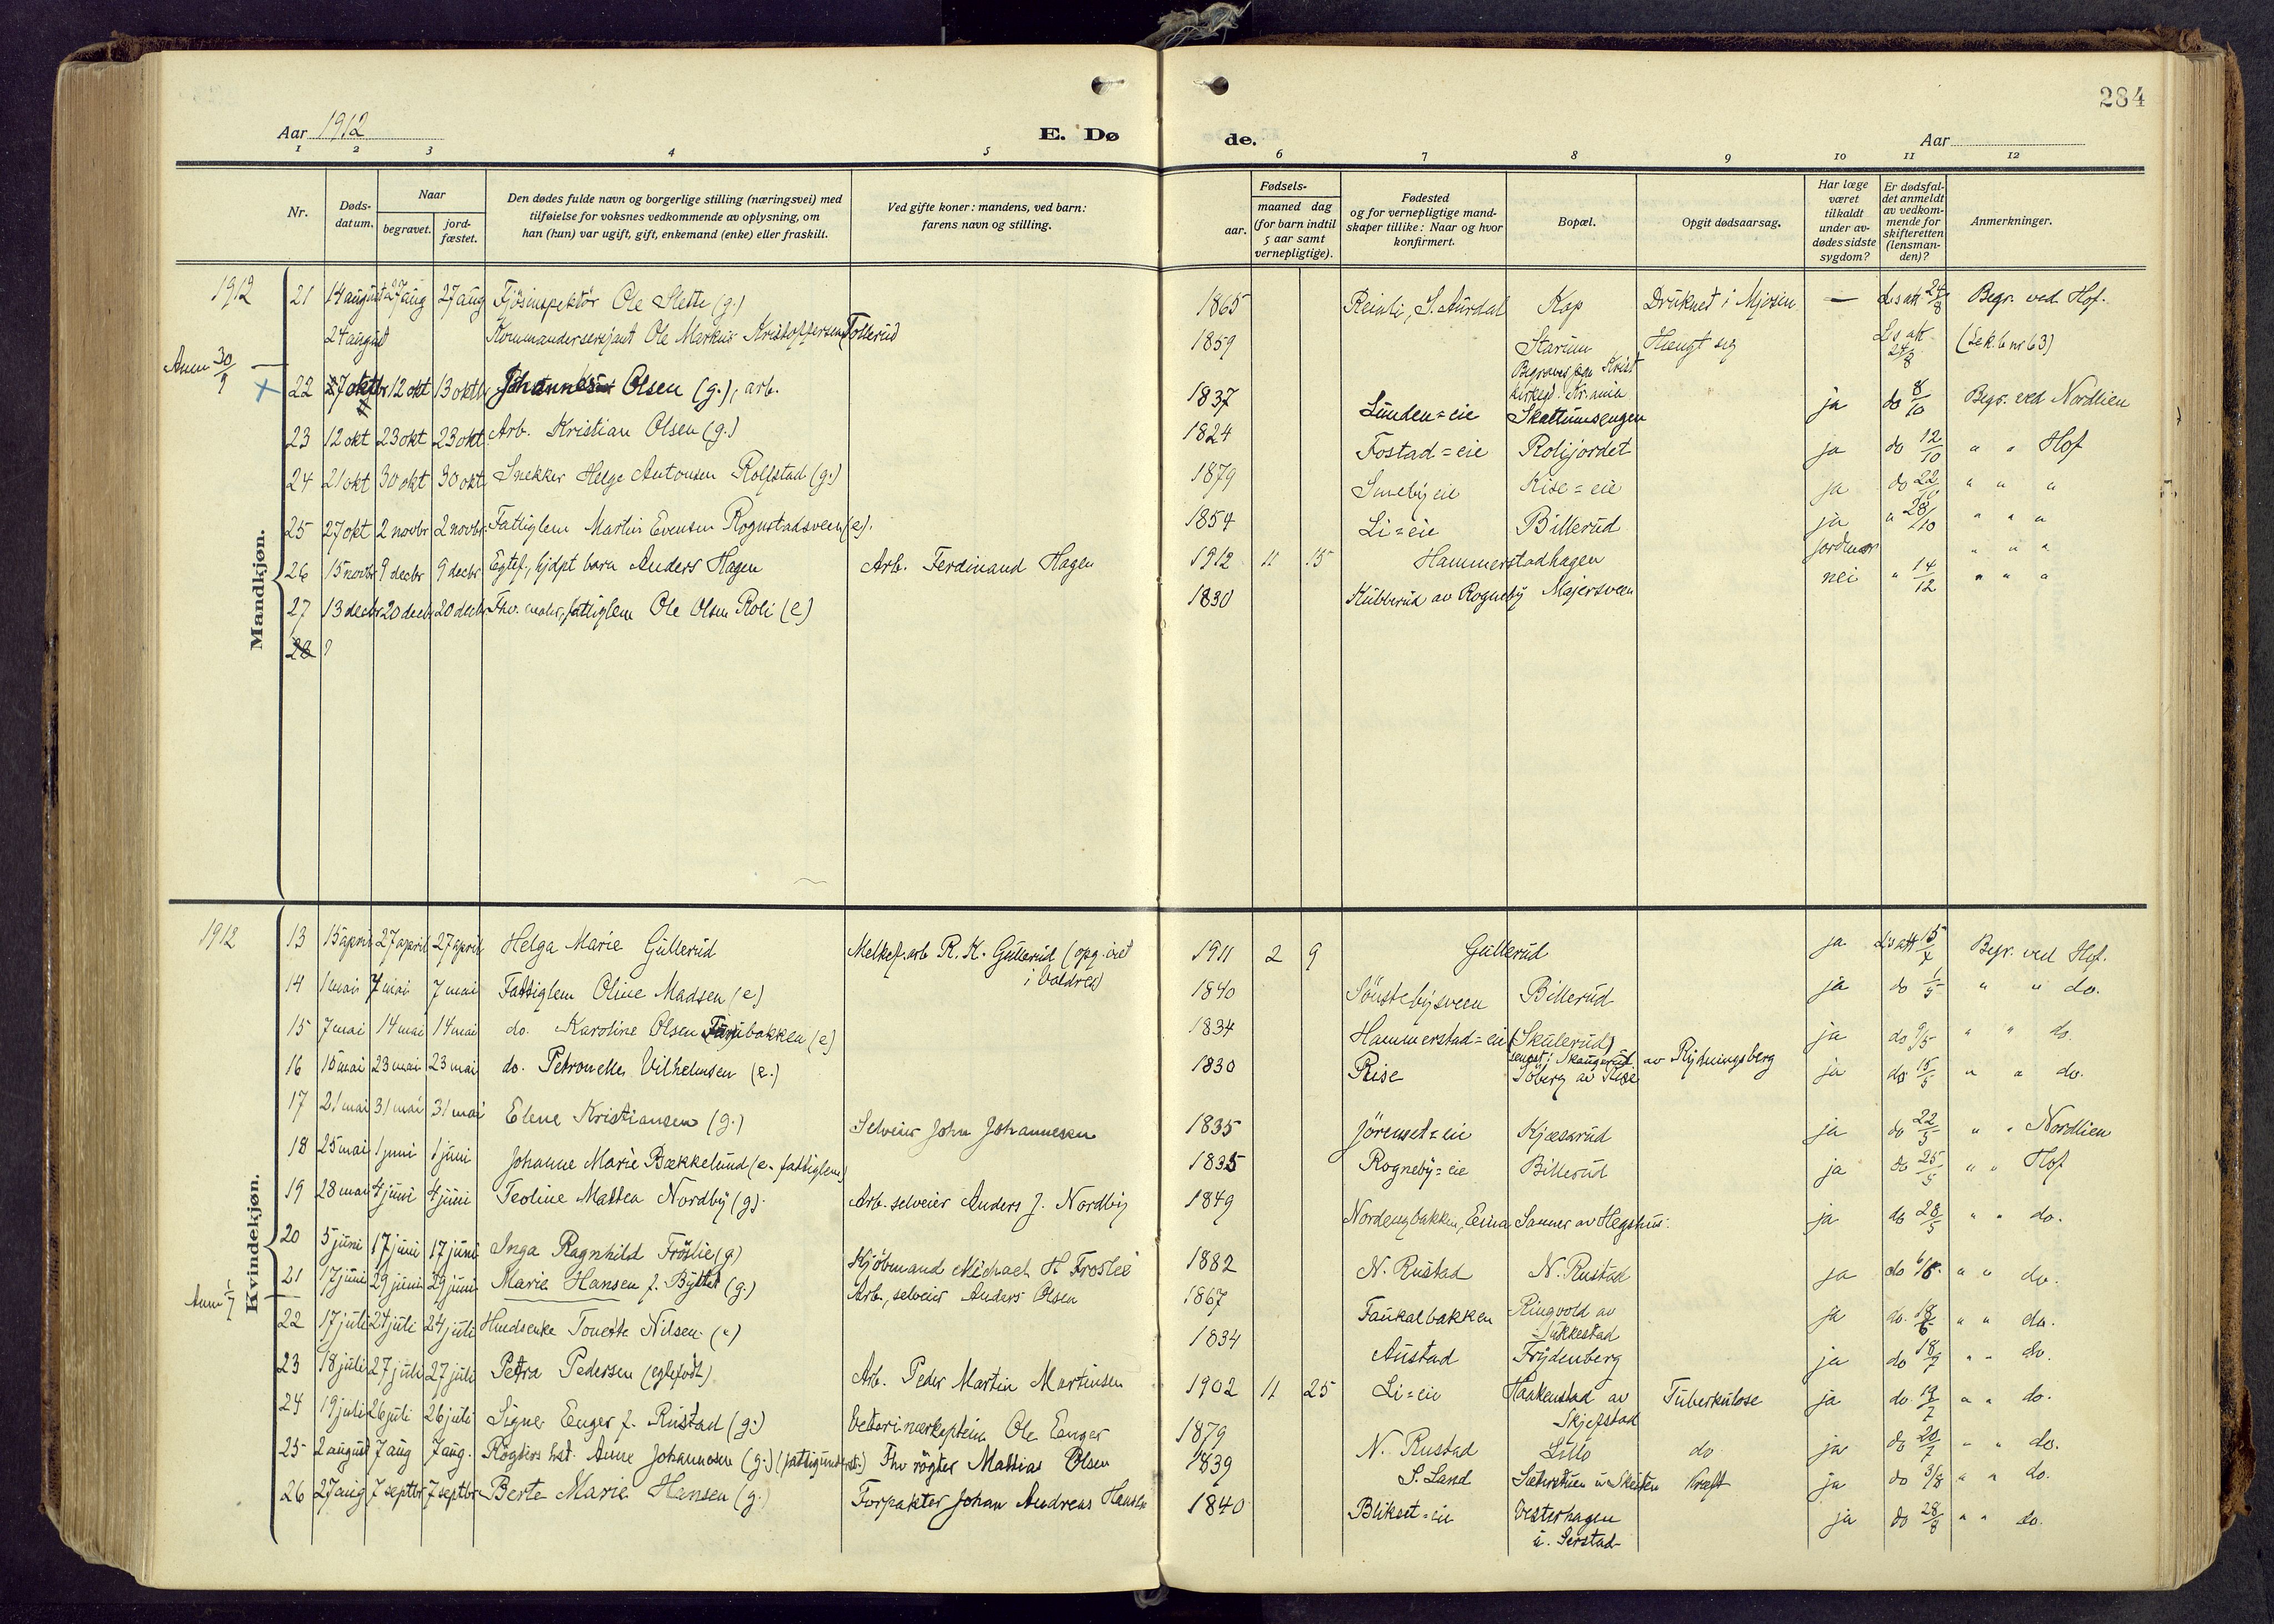 284
Aar 1912
E. Dø
de.
Aar
1 2 3 4 5 6 7 8 9 10 11 12
Nr.
Døds-datum.
Naar
begravet.
jord-fæstet.
Den dødes fulde navn og borgerlige stilling (næringsvei) med
tilføielse for voksnes vedkommende av oplysning, om
han (hun) var ugift, gift, enkemand (enke) eller fraskilt.
Ved gifte koner: mandens, ved barn:
farens navn og stilling.
Fødsels-
aar.
maaned dag
(for barn indtil
5 aar samt
vernepligtige).
Fødested
og for vernepligtige mand-
skaper tillike: Naar og hvor
konfirmert.
Bopæl.
Opgit dødsaarsag.
Har læge
været
tilkaldt
under av-
dødes sidste
sygdom?
Er dødsfal-
det anmeldt
av vedkom-
mende for
skifteretten
(lensman-
den)?
Anmerkninger.
Mandkjøn.
1912 21 14 august 27 aug 27 aug Fjösinspektör Ole Slette (g.) 1865 Reinli, S. Aurdal Kap Druknet i Mjösen — Ls att 24/8 Begr. ved Hof.
24 august Kommandersersjant Ole Markus Kristoffersen Tollerud 1859 Starum Hengt sig Ls att 24/8 (Sek. b nr 63)
Begraves paa Krist
kirkegd. Kr.ania
Anm 30/9
22 7 oktbr 12 okt 13 oktbr Johannes Olsen (g.), arb. 1837 Lunden = eie Skattumsengen ja do 8/10 Begr. ved Nordlien
23 12 okt 23 okt 23 okt Arb. Kristian Olsen (g.) 1824 Fostad = eie Rolijordet ja do 12/10 " " Hof
24 21 okt 30 okt 30 okt Snekker Helge Antonsen Rolfstad (g.) 1879 Smeby eie Kise = eie ja do 22/10 " " "
25 27 okt 2 novbr 2 novbr Fattiglem Martin Evensen Rognstadsveen (e). 1854 Li = eie Billerud ja " 28/10 " " "
26 15 novbr 9 decbr 9 decbr Egtef., hjdpt barn Anders Hagen Arb. Ferdinand Hagen 1912 11 15 Hammerstadhagen jordmor " " "
27 13 decbr 20 decbr 20 decbr Fhv. maler, fattiglem Ole Olsen Roli (e) 1830 Kubberud av Rogneby Majersveen nei " 14/12 " " "
28 ?
Kvindekjøn.
1912 13 15 april 27 april 27 april Helga Marie Gullerud Melkef.arb R. K. Gullerud (opg. i 1911 2 9 Gullerud ja Ls att 15/4 Begr. ved Hof.
i Valdres)
14 1 mai 7 mai 7 mai Fattiglem Oline Madsen (e) 1840 Sönstebysveen Billerud ja do 1/5 " " do.
15 7 mai 14 mai 14 mai do. Karoline Olsen Furubakken (e) 1834 Hammerstad = eie (Skulerud) ja do 9/5 " " do.
senest i Skaugerud av Rydningsberg
16 15 mai 23 mai 23 mai do. Petronelle Vilhelmsen (e.) 1830 Rise Soberg av Rise ja do 15/5 " " do.
17 21 mai 31 mai 31 mai Elene Kristiansen (g.) Selveier John Johannesen 1835 Jörenset = eie Kjæsarud ja do 22/5 " " Nordlien
18 25 mai 1 juni 1 juni Johanne Marie Bækkelund (e. fattiglem) 1835 Rogneby = eie Billerud ja do 25/5 " " Hof
19 28 mai 4 juni 4 juni Teoline Mattea Nordby (g). Arb. selveier Anders J. Nordby 1849 Nordengbakken, Eina Sanner av Hegshus. ja do 28/5 " " do.
20 5 juni 17 juni 17 juni Inga Ragnhild Fröslie (g) Kjöbmand Michael H Froslie 1882 N. Rustad N. Rustad ja do 6/6. " " do.
21 17 juni 29 juni 29 juni Marie Hansen f. Byttet (g.) Arb., selveier Anders Olsen 1867 Faukalbakken Ringvold av ja do. 18/6 " " do.
Sukkestad
Anm 1/7
22 17 juli 24 juli 24 juli Husenke Tonette Nilsen (e) 1834 Austad Frydenberg ja do 18/7 " " do.
23 18 juli 27 juli 27 juli Petra Pedersen (egtefödt) Arb. Peder Martin Martinsen 1902 11 25 Li = eie Haakenstad av Tuberkulose ja do 19/7 " " do.
Skjefstad
24 19 juli 26 juli 26 juli Signe Eenger f. Rustad (g.) Veterinærkaptein Ole Eenger 1879 N. Rustad Lillo do ja do 20/7 " " do.
25 2 august 7 aug 7 aug. Rögters hst. Anne Johannesen (g.) (fattigunderst.) Fhv rögter Mattias Olsen 1839 S. Land Kræft ja do 3/8 " " do.
26 27 aug 7 septbr 7 septbr Berte Marie Hansen (g.) Forpakter Johan Andreas Hansen 1840 Blikset = eie Vesterhagen ja do 28/8 " " do.
u. Serstad